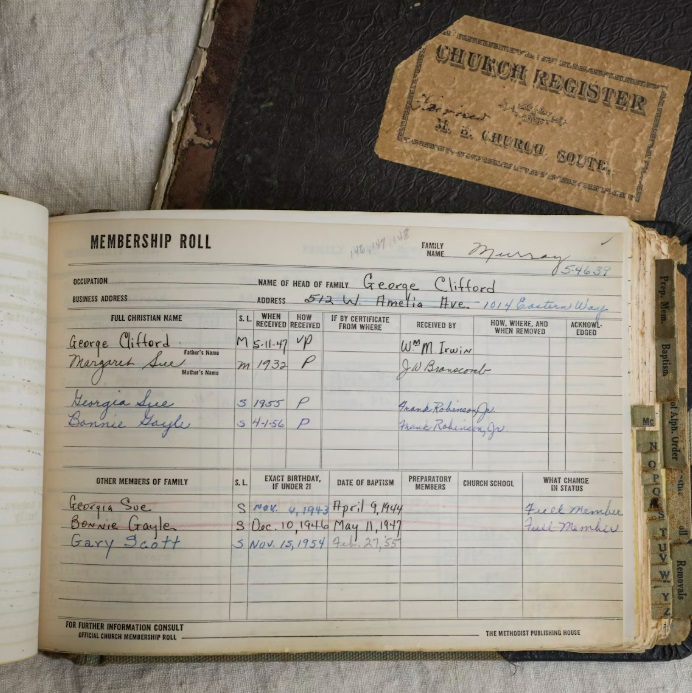 CHURCH REGISTER
M. E. CHURCH, SOUTH.
MEMBERSHIP ROLL
FAMILY NAME Murray
54639
OCCUPATION NAME OF HEAD OF FAMILY George Clifford
BUSINESS ADDRESS ADDRESS 512 W Amelia Ave. - 1014 Eastern Way
FULL CHRISTIAN NAME S. L. WHEN RECEIVED HOW RECEIVED IF BY CERTIFICATE FROM WHERE RECEIVED BY HOW, WHERE, AND WHEN REMOVED ACKNOWL-EDGED
George Clifford M 5-11-47 VP Wm M Irwin
Father's Name
Margaret Sue m 1932 P J W Branscomb
Mother's Name
Georgia Sue S 1955 P Frank Robinson, Jr.
Bonnie Gayle S 4-1-56 P Frank Robinson, Jr.
OTHER MEMBERS OF FAMILY S. L. EXACT BIRTHDAY, IF UNDER 21 DATE OF BAPTISM PREPARATORY MEMBERS CHURCH SCHOOL WHAT CHANGE IN STATUS
Georgia Sue S Nov. 4, 1943 April 9, 1944 Full Member
Bonnie Gayle S Dec. 10, 1946 May 11, 1947 Full Member
Gary Scott S Nov. 15, 1954 Feb. 27, '55
FOR FURTHER INFORMATION CONSULT
OFFICIAL CHURCH MEMBERSHIP ROLL THE METHODIST PUBLISHING HOUSE
Prep. Mem.
Baptism
of Alph. Order
Removals
Mc
N
O
P
Q
T
U
V
W
Y
Z